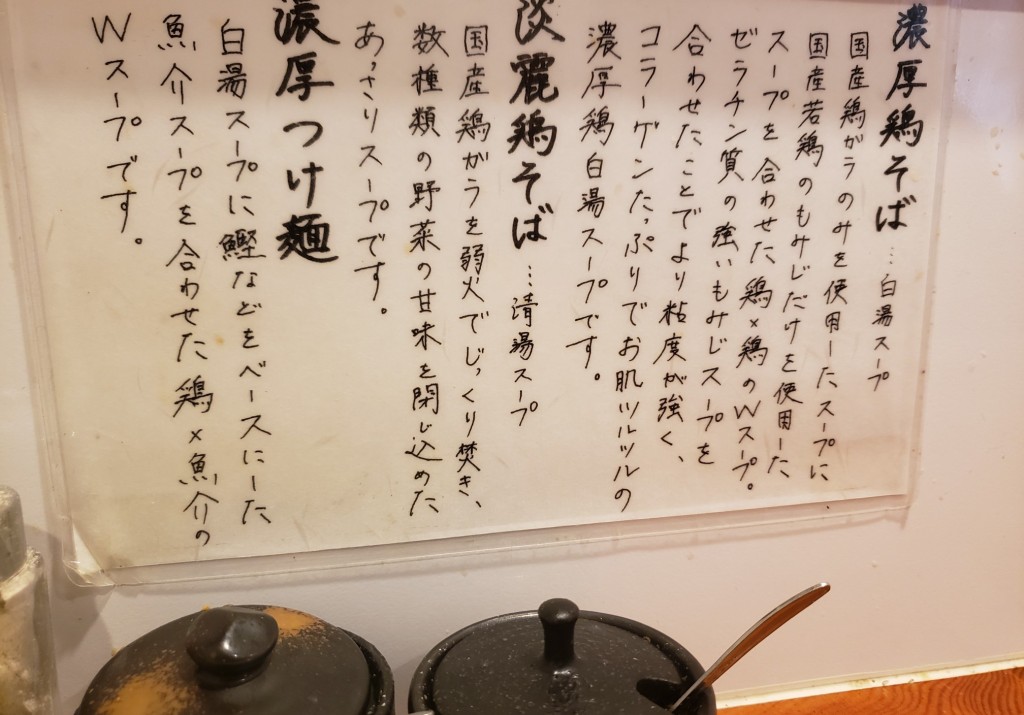 濃厚鶏そば…白湯スープ
国産鶏ガラのみを使用したスープに
国産若鶏のもみじだけを使用した
スープを合わせた鶏×鶏のWスープ。
ゼラチン質の強いもみじスープを
合わせたことでより粘度が強く、
コラーゲンたっぷりでお肌ツルツルの
濃厚鶏白湯スープです。
淡麗鶏そば…清湯スープ
国産鶏がらを弱火でじっくり焚き、
数種類の野菜の甘味を閉じ込めた
あっさりスープです。
濃厚つけ麺
白湯スープに鰹などをベースにした
魚介スープを合わせた鶏×魚介の
Wスープです。